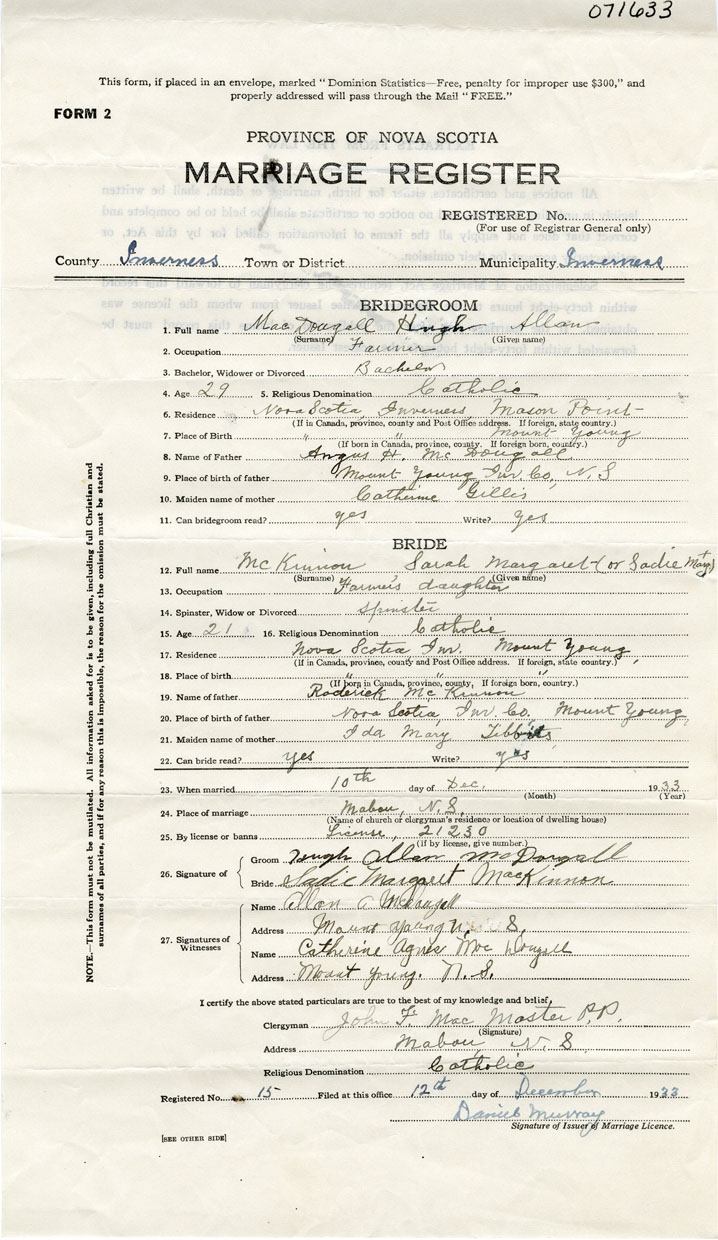 071633
This form, if placed in an envelope, marked "Dominion Statistics—Free, penalty for improper use $300," and
properly addressed will pass through the Mail "FREE."
FORM 2
PROVINCE OF NOVA SCOTIA
MARRIAGE REGISTER
REGISTERED No.
(For use of Registrar General only)
County Inverness Town or District Municipality Inverness
BRIDEGROOM
1. Full name MacDougall Hugh Allan
(Surname) (Given name)
2. Occupation Farmer
3. Bachelor, Widower or Divorced Bachelor
4. Age 29 5. Religious Denomination Catholic
6. Residence Nova Scotia, Inverness Mason Point
(If in Canada, province, county and Post Office address. If foreign, state country.)
7. Place of Birth " " Mount Young
(If born in Canada, province, county. If foreign born, country.)
8. Name of Father Angus H. McDougall
9. Place of birth of father Mount Young Inv. Co, N.S
10. Maiden name of mother Catherine Gillis
11. Can bridegroom read? yes Write? yes
BRIDE
12. Full name McKinnon Sarah Margaret (or Sadie Margt)
(Surname) (Given name)
13. Occupation Farmer's daughter
14. Spinster, Widow or Divorced spinster
15. Age 21 16. Religious Denomination Catholic
17. Residence Nova Scotia Inv. Mount Young
(If in Canada, province, county and Post Office address. If foreign, state country.)
18. Place of birth " " "
(If born in Canada, province, county, If foreign born, country.)
19. Name of father Roderick McKinnon
20. Place of birth of father Nova Scotia, Inv Co. Mount Young
21. Maiden name of mother Ida Mary Tibbits
22. Can bride read? yes Write? yes
23. When married 10th day of Dec. 1933
(Month) (Year)
24. Place of marriage Mabou, N.S,
(Name of church or clergyman's residence or location of dwelling house)
25. By license or banns License, 21230
(If by license, give number.)
26. Signature of Groom Hugh Allan McDougall
Bride Sadie Margaret MacKinnon
27. Signatures of Witnesses
Name Allan A McDougall
Address Mount Young N. S.
Name Catherine Agnes MacDougall
Address Mount Young. N.S.
I certify the above stated particulars are true to the best of my knowledge and belief,
Clergyman John F. MacMaster P.P.
(Signature)
Address Mabou N. S.
Religious Denomination Catholic
Registered No. 15 Filed at this office 12th day of December 1933
Daniel Murray
Signature of Issuer of Marriage Licence.
[SEE OTHER SIDE]
NOTE.—This form must not be mutilated. All information asked for is to be given, including full Christian and
surnames of all parties, and if for any reason this is impossible, the reason for the omission must be stated.